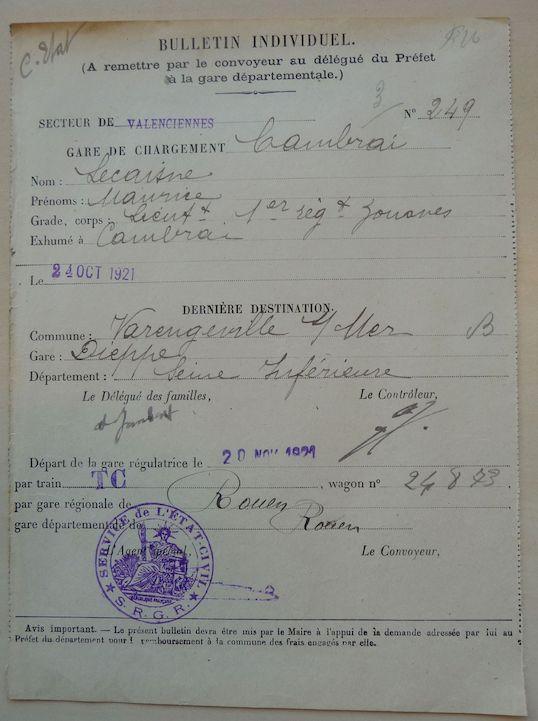 C. Etat
BULLETIN INDIVIDUEL.
(A remettre par le convoyeur au délégué du Préfet
à la gare départementale.)
3
SECTEUR DE VALENCIENNES N° 249
GARE DE CHARGEMENT Cambrai
Nom : Lecaisne
Prénoms : Maurice
Grade, corps : Lieut t 1er Rég t Zouaves
Exhumé à Cambrai
Le 24 OCT 1921
DERNIÈRE DESTINATION.
Commune : Varengeville s/Mer B
Gare : Dieppe
Département : Seine Inférieure
Le Délégué des familles, Le Contrôleur,
Départ de la gare régulatrice le 20 NOV 1921
par train TC , wagon n° 24 873
par gare régionale de Rouen
gare départementale de Rouen
L'Agent spécial, Le Convoyeur,
SERVICE de L'ÉTAT-CIVIL
S. R. G. R.
Avis important. — Le présent bulletin devra être mis par le Maire à l'appui de la demande adressée par lui au
Préfet du département pour l remboursement à la commune des frais engagés par elle.